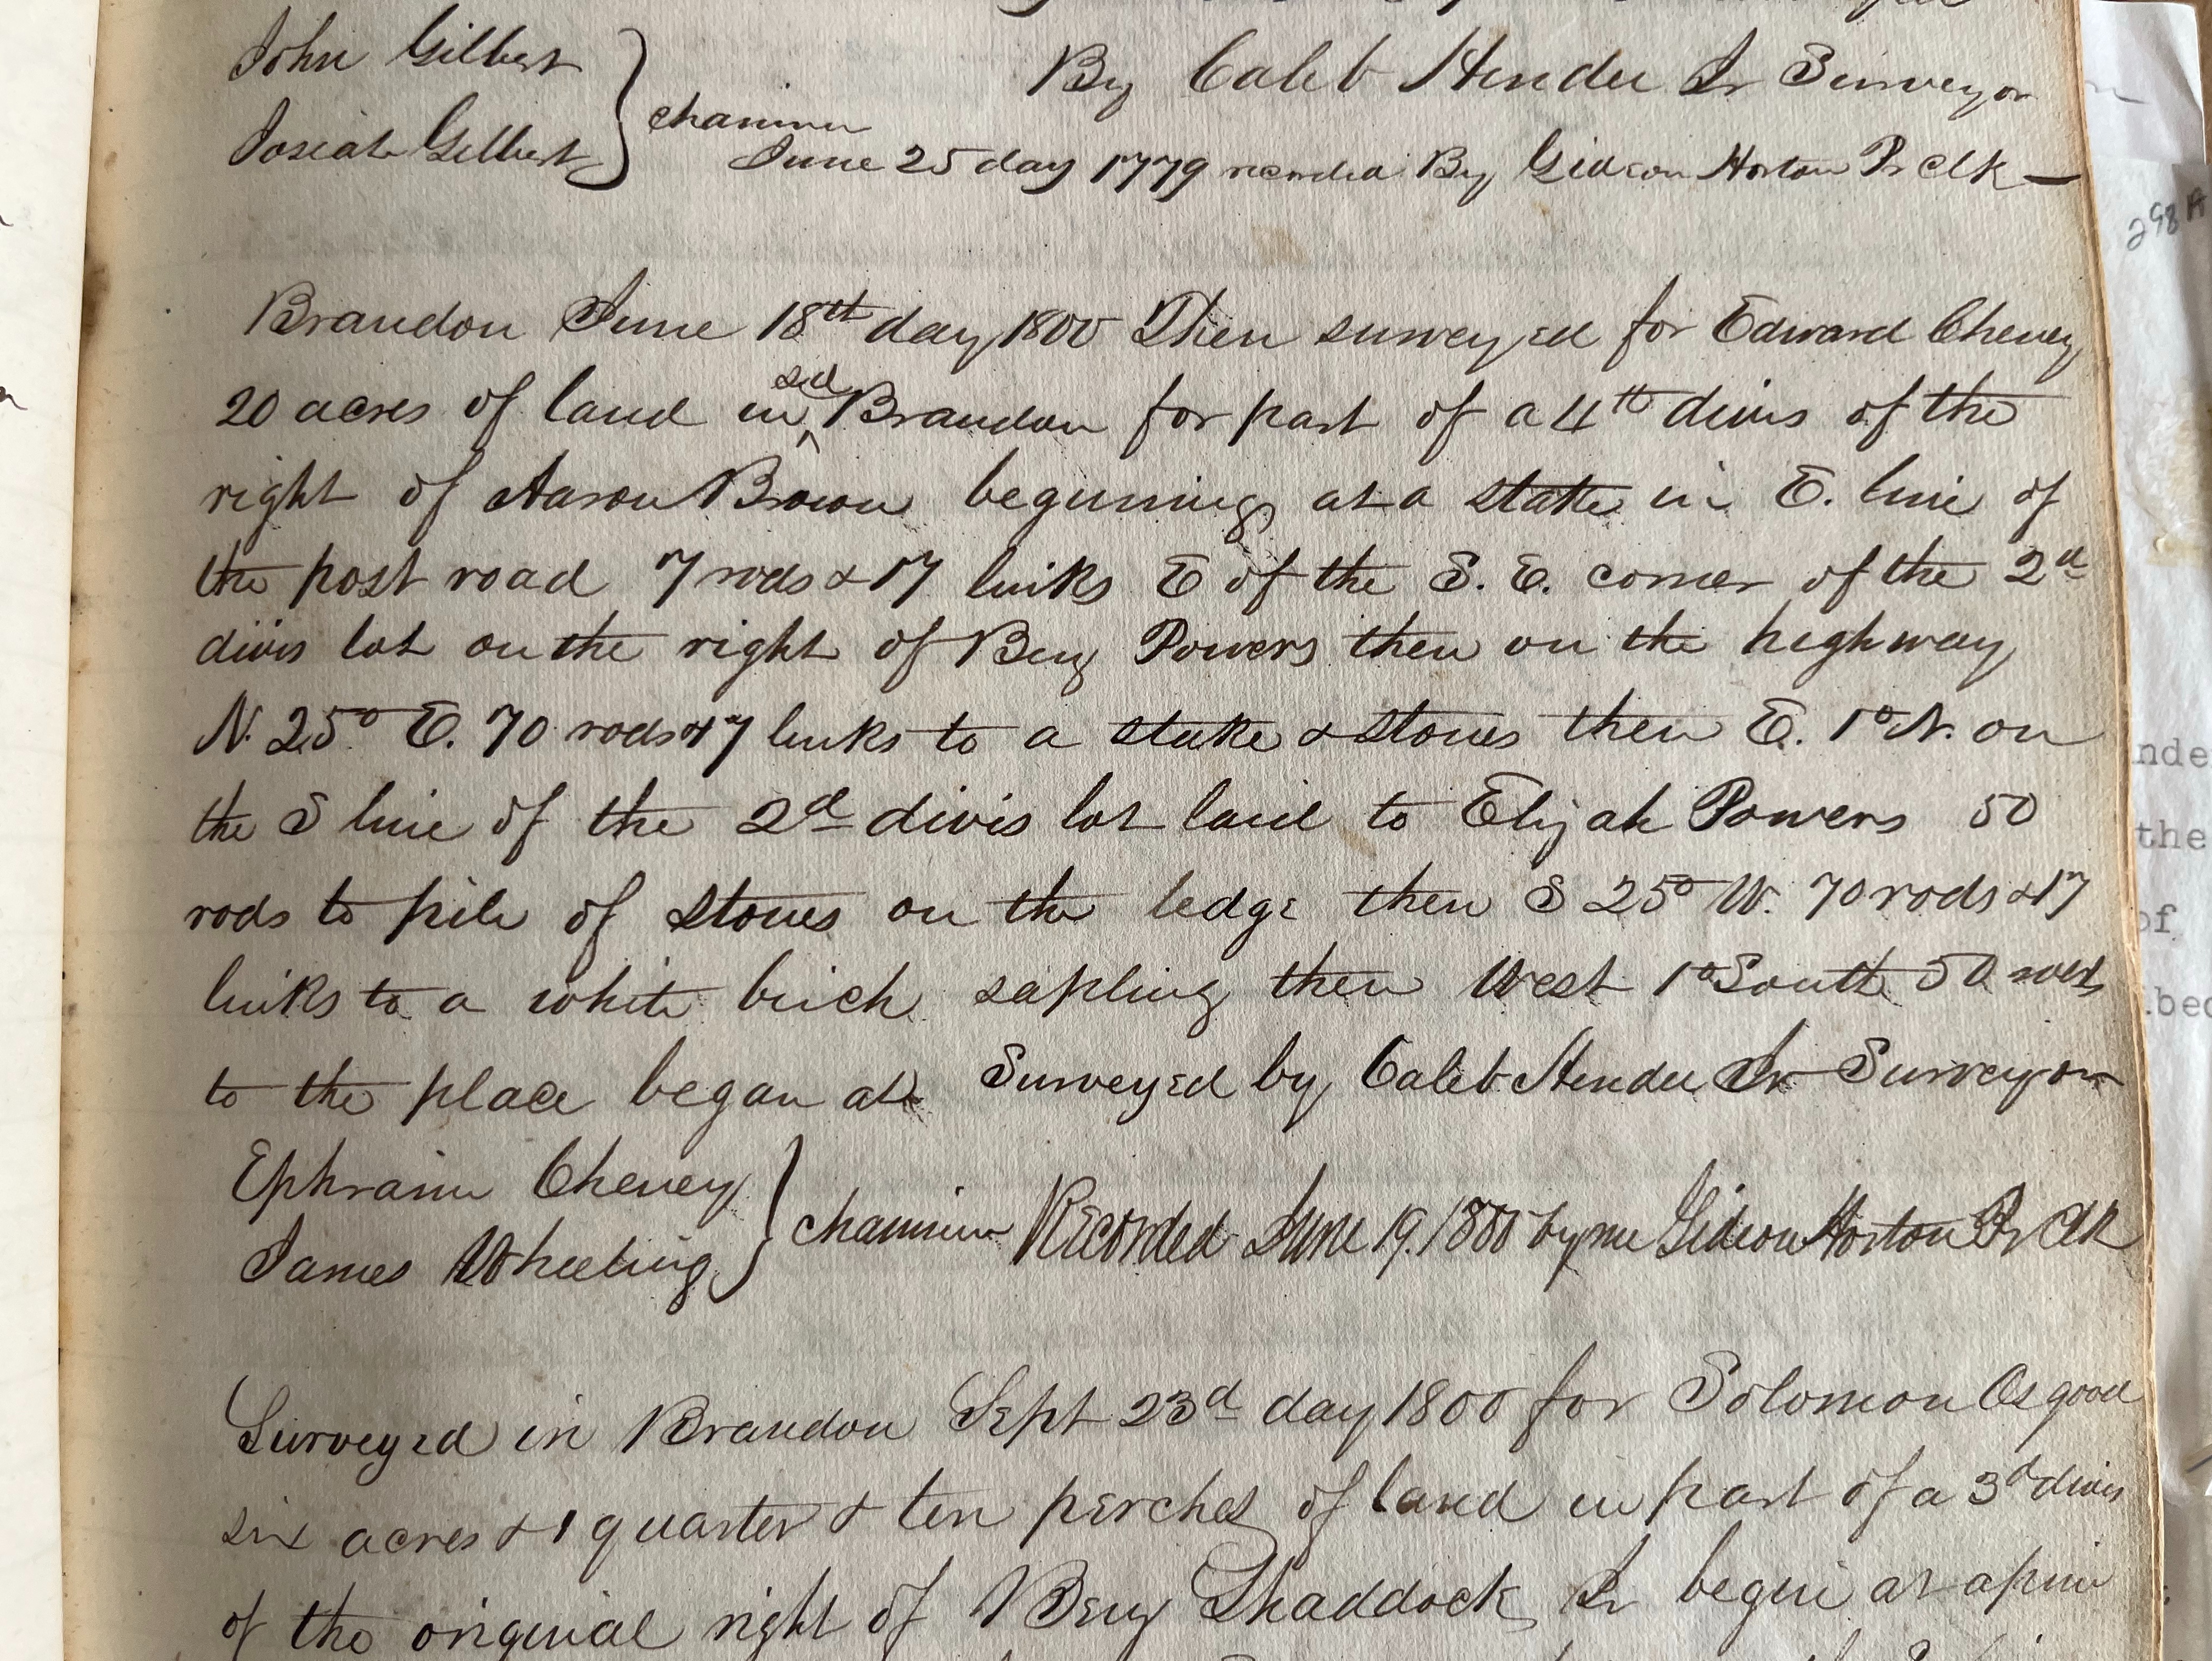 John Gilbert
By Caleb Hendee Jr Surveyor
Josiah Gilbert } chainmen
June 25 day 1779 recorded By Gideon Horton Pr Clk —
298 A
Brandon June 18th day 1800 Then surveyed for Edward Cheney
20 acres of land in ^sd Brandon for part of a 4th divis of the
right of Aaron Brown beginning at a stake in E. line of
the post road 7 rods & 17 links E of the S. E. corner of the 2d
divis lot on the right of Benj Powers then on the highway
N. 25° E. 70 rods & 17 links to a stake & stones then E. 1° N. on
the S line of the 2d divis lot laid to Elijah Powers 50
rods to pile of stones on the ledge then S 25° W. 70 rods & 17
links to a white birch sapling then West 1° South 50 rods
to the place began at Surveyed by Caleb Hendee Jr Surveyor
Ephraim Cheney
James Wheeling } chainmen Recorded June 19. 1800 by me Gideon Horton Pr Clk
Surveyed in Brandon Sept 23d day 1800 for Solomon Osgood
six acres & 1 quarter & ten perches of land in part of a 3d divis
of the original right of Benj Shaddock Jr begin at a pine
nde
the
of
bed